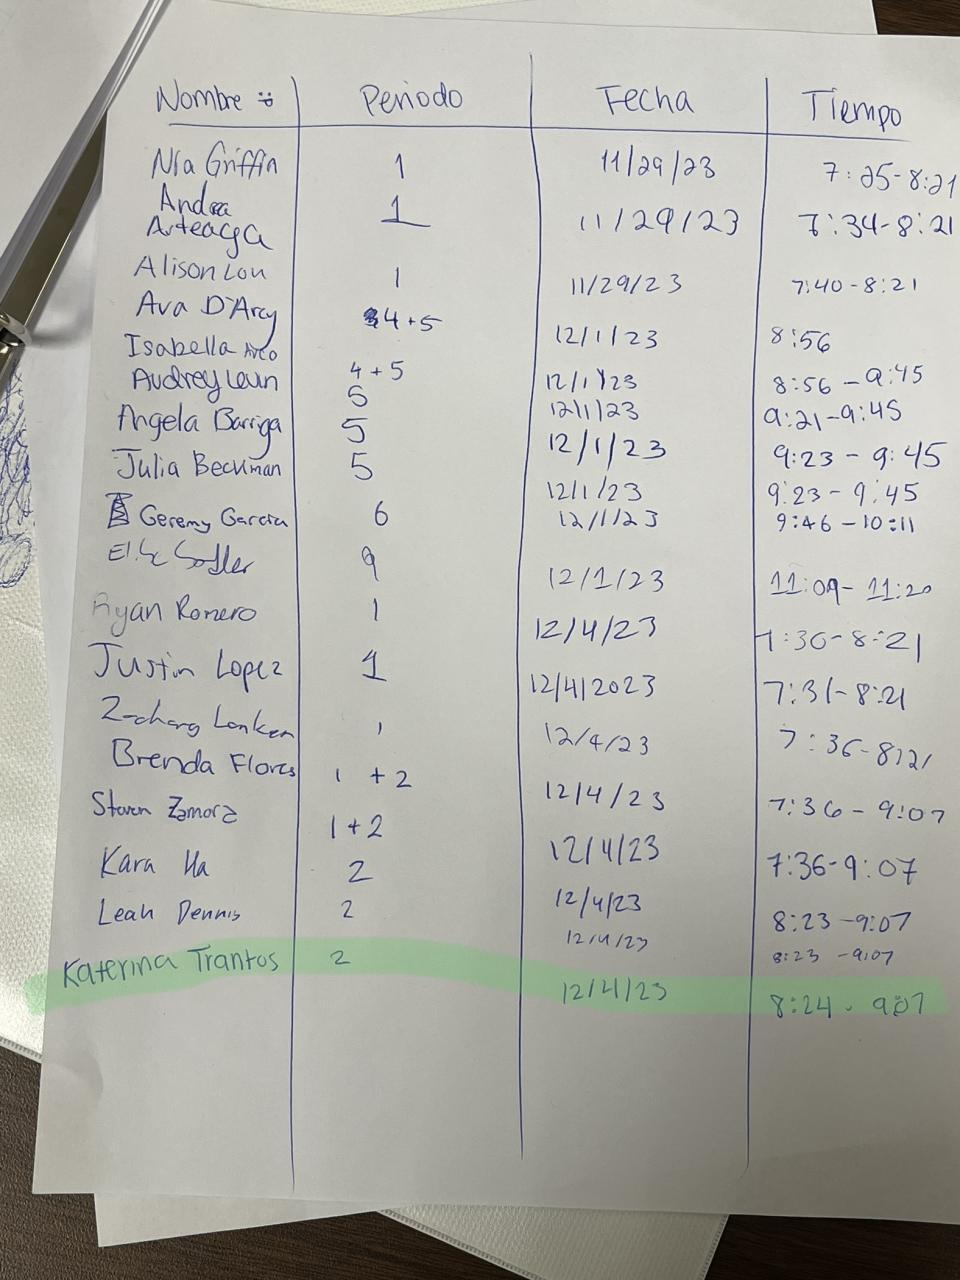 Nombre Periodo Fecha Tiempo
Nia Griffin 1 11/29/23 7:25-8:21
Andrea
Arteaga 1 11/29/23 7:34-8:21
Alison Lou 1 11/29/23 7:40-8:21
Ava D'Arcy 4+5 12/1/23 8:56
Isabella Arco 4+5 12/1/23 8:56-9:45
Audrey 5 12/1/23 9:21-9:45
Angela Barriga 5 12/1/23 9:23-9:45
Julia Beckman 5 12/1/23 9:23-9:45
Geremy Garcia 6 12/1/23 9:46-10:11
9 12/1/23 11:09-11:20
Ryan Romero 1 12/4/23 7:30-8:21
Justin Lopez 1 12/4/2023 7:31-8:21
1 12/4/23 7:36-8:21
Brenda Flores 1+2 12/4/23 7:36-9:07
Steven Zamora 1+2 12/4/23 7:36-9:07
Kara Ha 2 12/4/23 8:23-9:07
Leah Dennis 2 12/4/23 8:23-9:07
Katerina Trantos 2 12/4/23 8:24-9:07